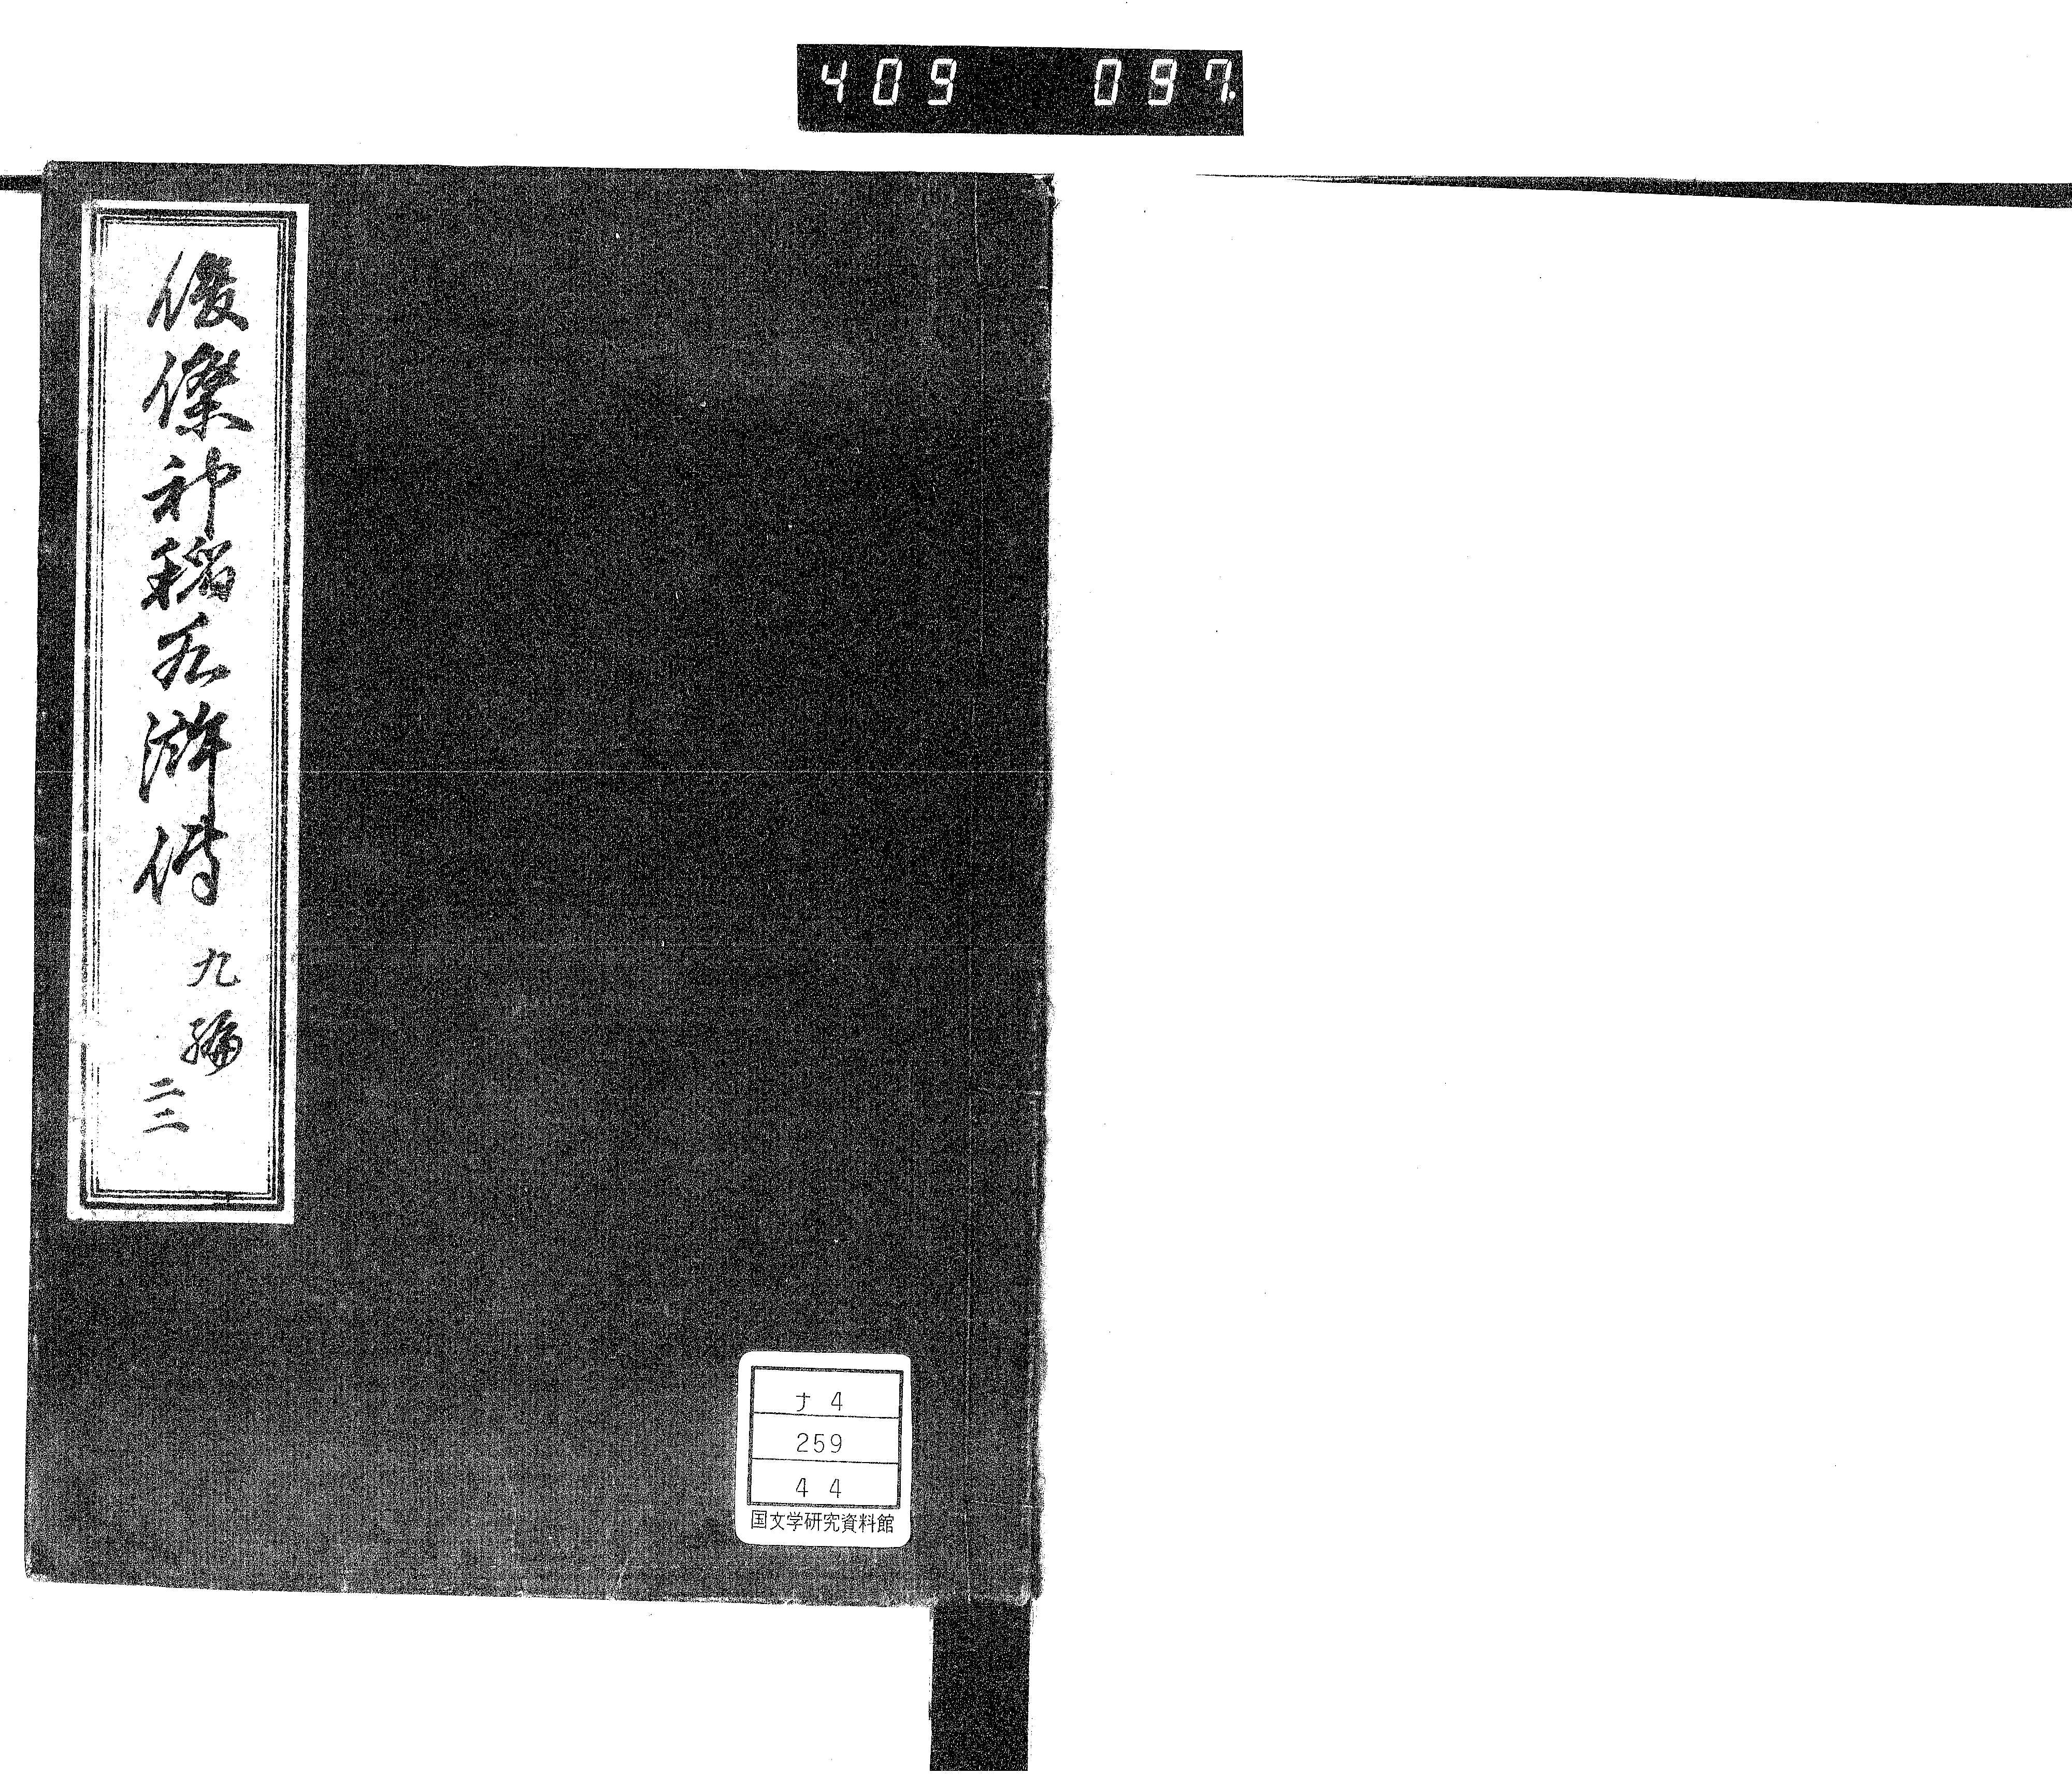 409 097.
俊傑神稲水滸傳
九編
二三
ナ4
259
44
国文学研究資料館